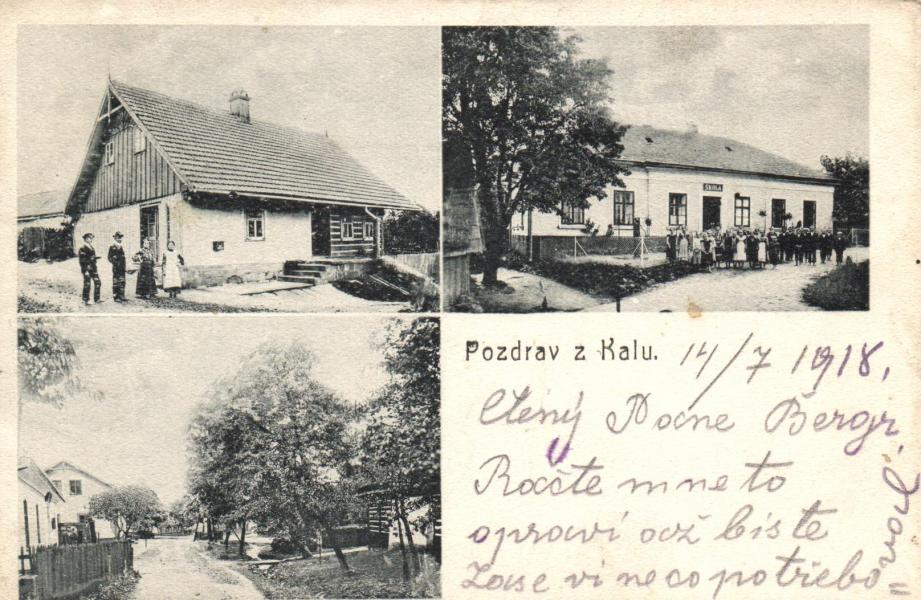 ŠKOLA
Pozdrav z Kalu. 14/7 1918,
Ctený Pane Bergr.
Račte mne to
opraví až biste
zase vi neco potřebo=
val